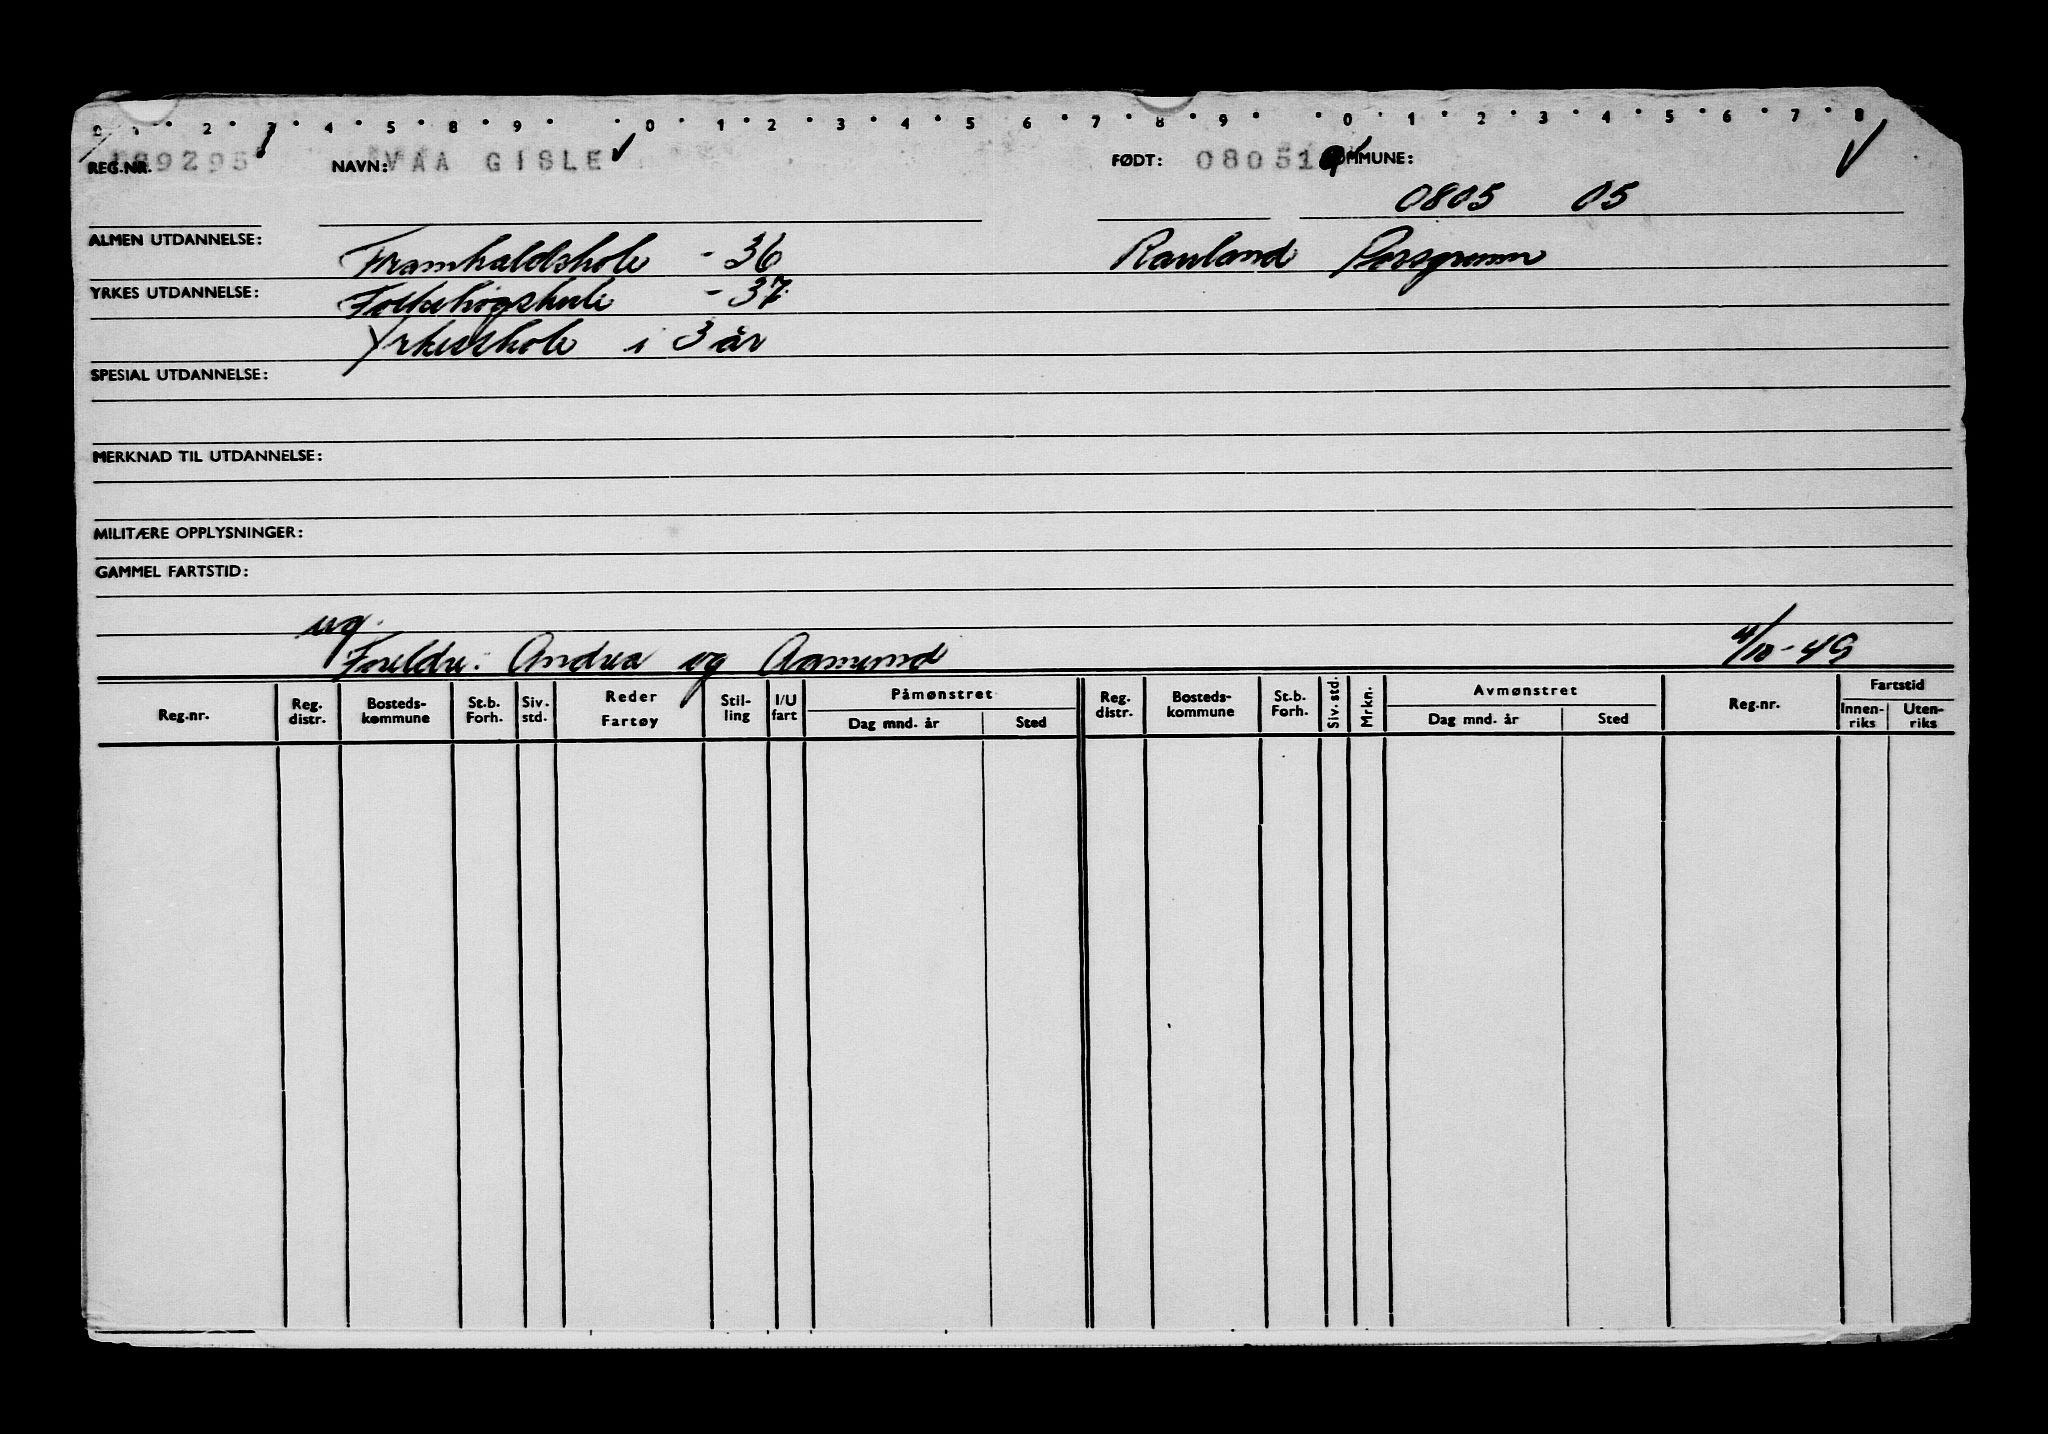 0 1 2 3 4 5 8 9 0 1 2 3 4 5 6 7 8 9 0 1 2 3 4 5 6 7 8
REG.NR. 89295 NAVN: VAA GISLE FØDT: 08051 KOMMUNE:
0805 05
ALMEN UTDANNELSE: Framhaldskole - 36 Rauland Porsgrunn
YRKES UTDANNELSE: Folkehøgskule - 37
Yrkesskole i 3 år
SPESIAL UTDANNELSE:
MERKNAD TIL UTDANNELSE:
MILITÆRE OPPLYSNINGER:
GAMMEL FARTSTID:
ug.
Foreldre: Andrea og Aamund 4/10-49
Reg.nr. Reg. distr. Bosteds-kommune St.b. Forh. Siv. std. Reder Fartøy Stil-ling I/U fart Påmønstret Dag mnd. år Sted Reg. distr. Bosteds-kommune St.b. Forh. Siv. std. Mrkn. Avmønstret Dag mnd. år Sted Reg.nr. Fartstid Innen-riks Uten-riks